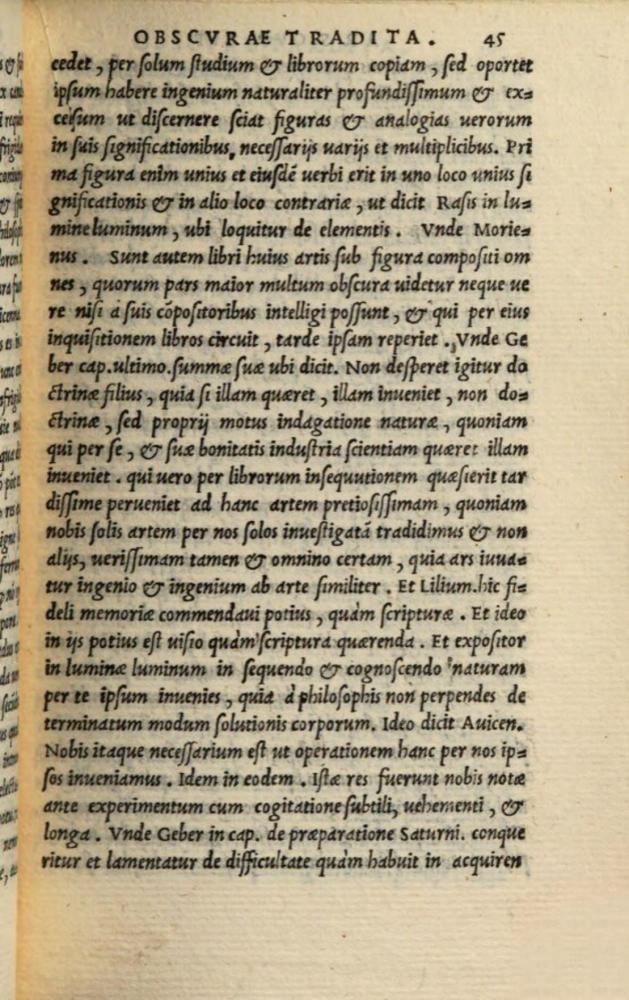 OBSCVRAE TRADITA. 45
cedet, per ſolum ſtudium & librorum copiam, ſed oportet
ipſum habere ingenium naturaliter profundiſſimum & ex=
celſum ut diſcernere ſciat figuras & analogias uerorum
in ſuis ſignificationibus, neceſſarijs uarijs et multiplicibus. Pri
ma figura enim unius et eiuſdē uerbi erit in uno loco unius ſi
gnificationis & in alio loco contrariæ, ut dicit Raſis in lu=
mine luminum, ubi loquitur de elementis. Vnde Morie=
nus. Sunt autem libri huius artis ſub figura compoſiti om
nes, quorum pars maior multum obſcura uidetur neque ue
re niſi à ſuis cōpoſitoribus intelligi poſſunt, & qui per eius
inquiſitionem libros circuit, tarde ipſam reperiet. Vnde Ge
ber cap.ultimo.ſummæ ſuæ ubi dicit. Non deſperet igitur do
ctrinæ filius, quia ſi illam quæret, illam inueniet, non do=
ctrinæ, ſed proprij motus indagatione naturæ, quoniam
qui per ſe, & ſuæ bonitatis induſtria ſcientiam quæret illam
inueniet. qui uero per librorum inſequutionem quæſierit tar
diſſime perueniet ad hanc artem pretioſiſſimam, quoniam
nobis ſolis artem per nos ſolos inueſtigatā tradidimus & non
alijs, ueriſſimam tamen & omnino certam, quia ars iuua=
tur ingenio & ingenium ab arte ſimiliter. Et Lilium.hic fi=
deli memoriæ commendaui potius, quàm ſcripturæ. Et ideo
in ijs potius eſt uiſio quàm ſcriptura quærenda. Et expoſitor
in luminæ luminum in ſequendo & cognoſcendo naturam
per te ipſum inuenies, quia à philoſophis non perpendes de
terminatum modum ſolutionis corporum. Ideo dicit Auicen.
Nobis itaque neceſſarium eſt ut operationem hanc per nos ip=
ſos inueniamus. Idem in eodem. Iſtæ res fuerunt nobis notæ
ante experimentum cum cogitatione ſubtili, uehementi, &
longa. Vnde Geber in cap. de præparatione Saturni. conque
ritur et lamentatur de difficultate quàm habuit in acquiren